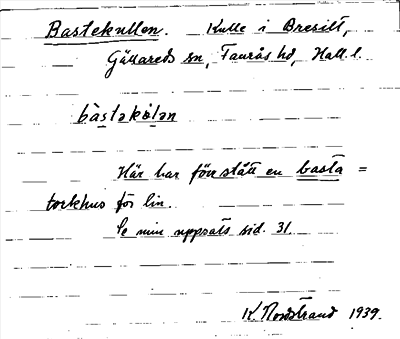 Bastekullen. Kulle i Bresilt,
Gällareds sn, Faurås hd, Hall. l.
bàstakølan
Här har förr stått en basta =
torkhus för lin.
Se min uppsats sid. 31.
K. Nordstrand 1939.